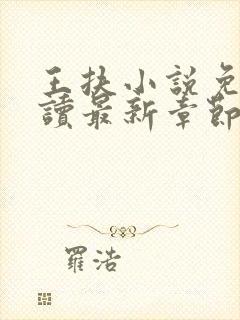 王扶小說免
讀最新章節
羅浩